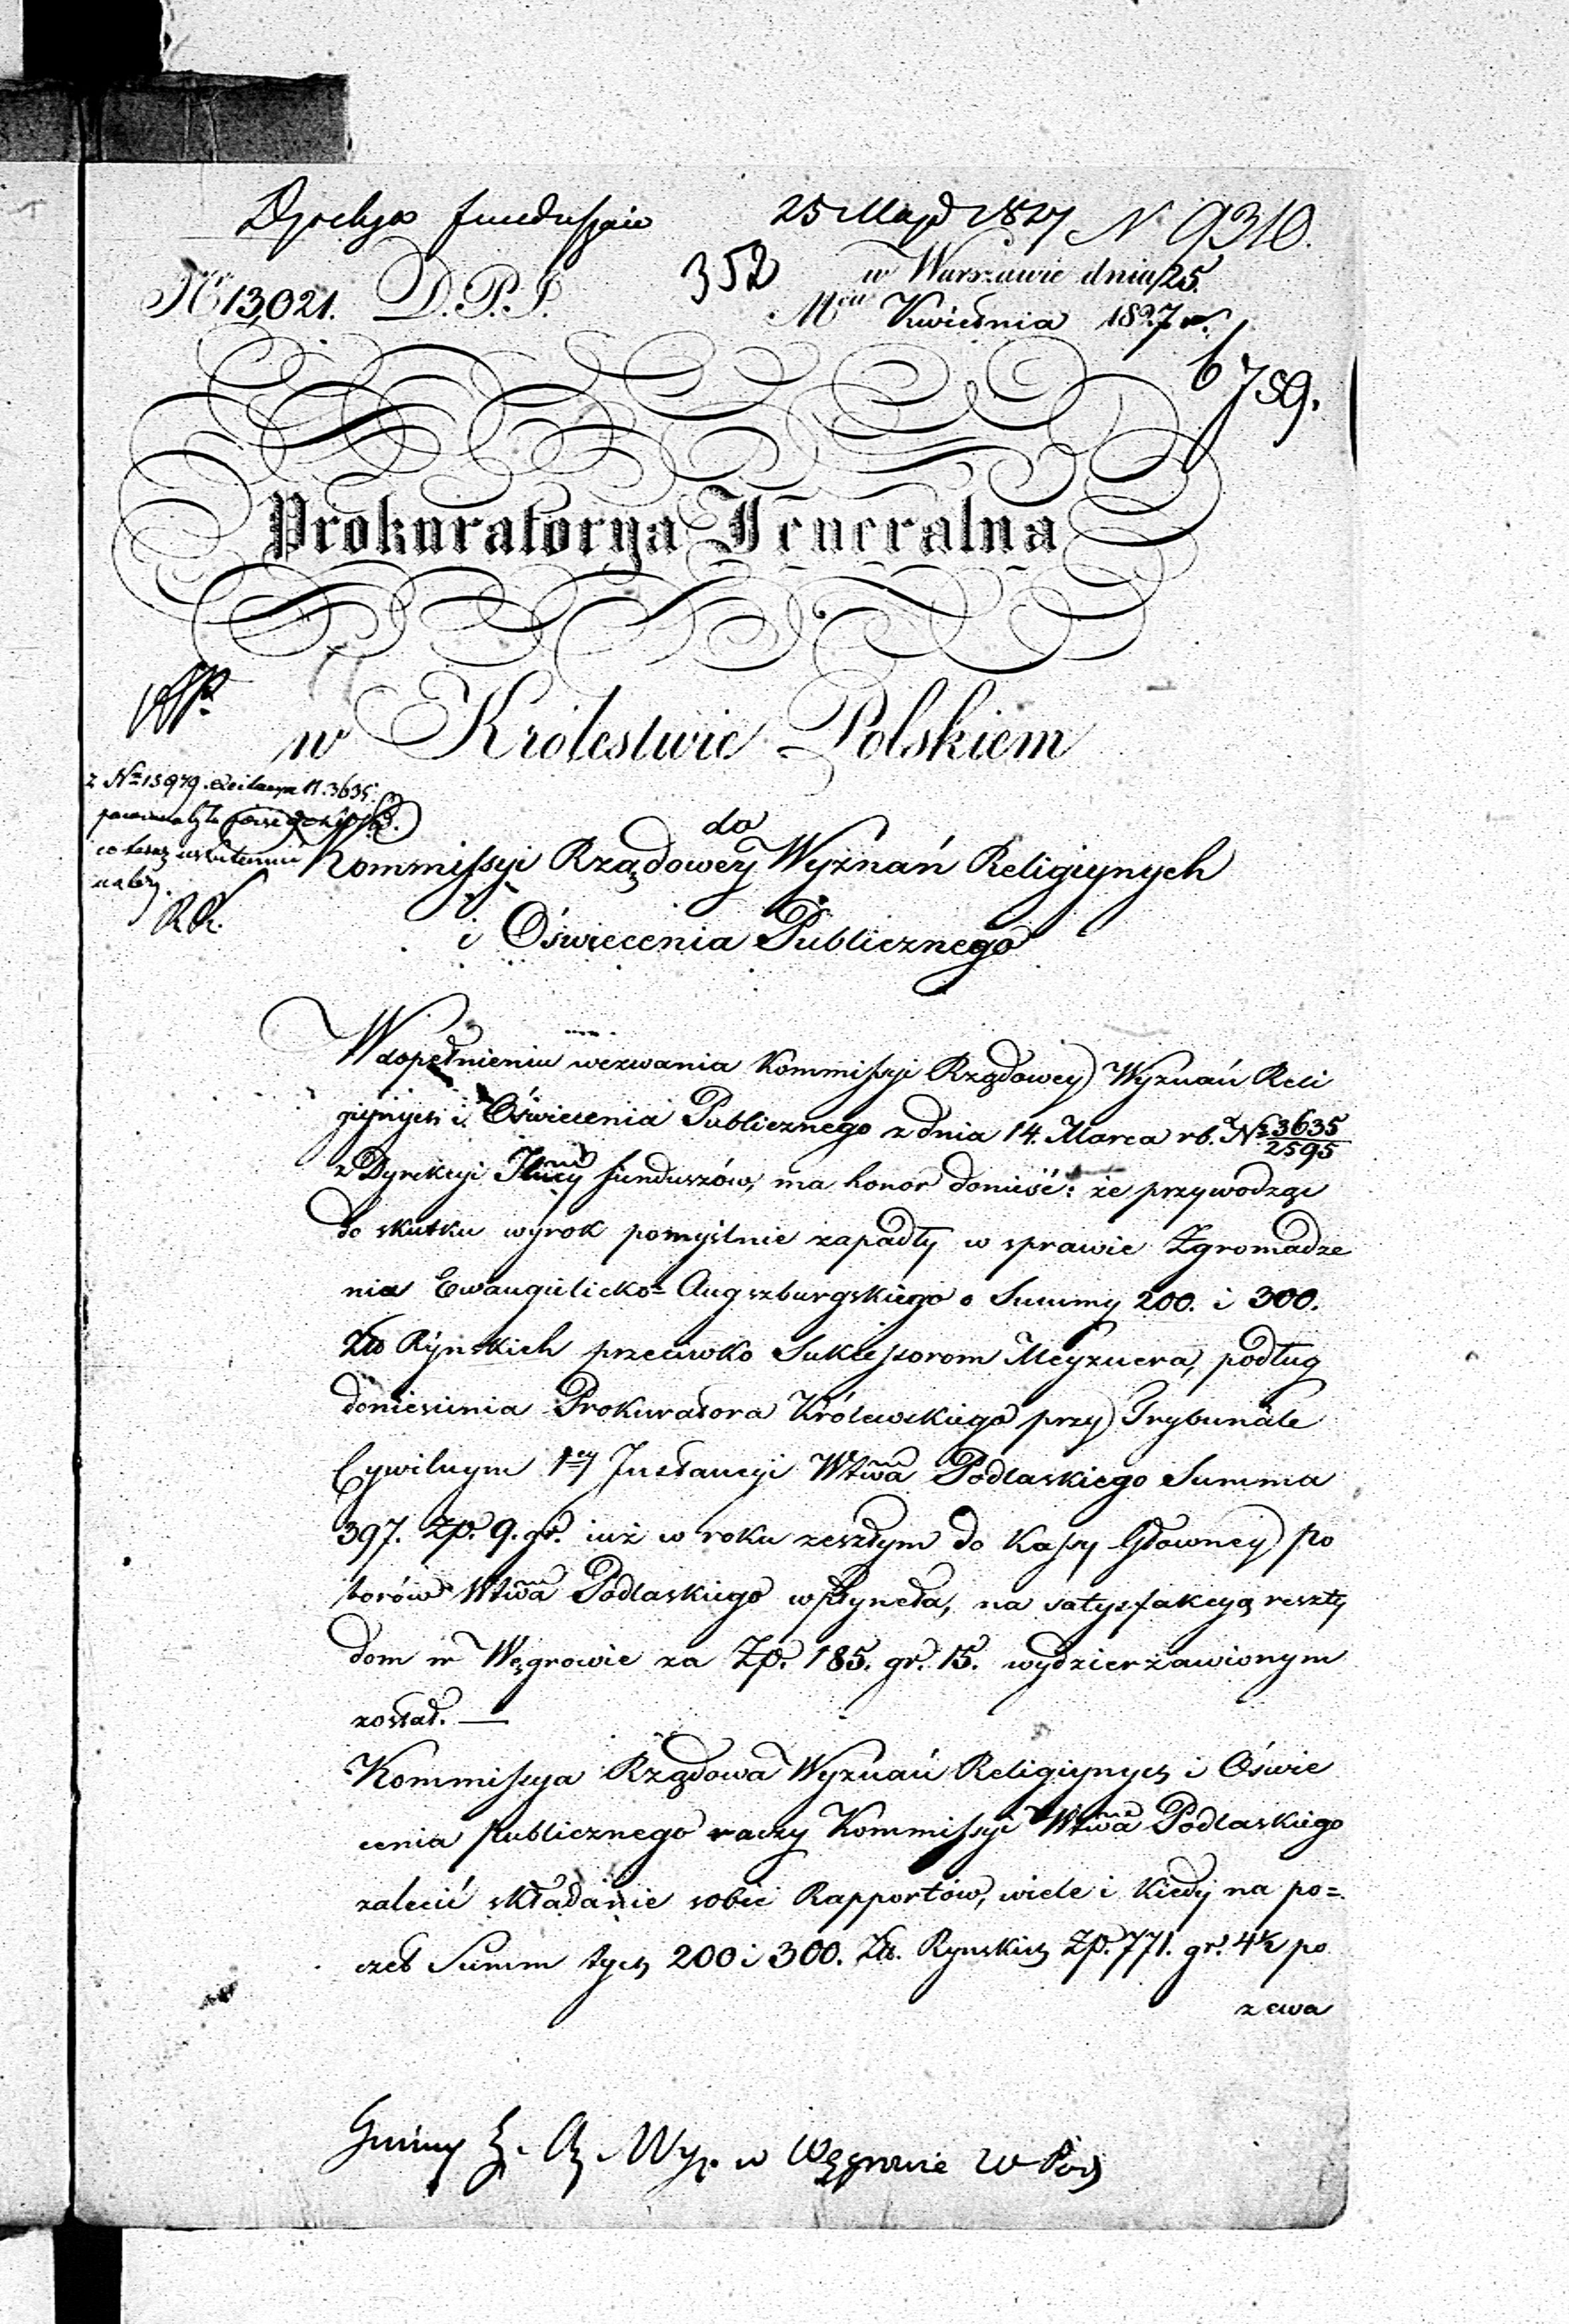 Dyrekcya funduszów 25 Maja 1827 N 9310.
N. 13,021. D.P.I. 352 w Warszawie dnia 25.
Mca Kwietnia 1827 r.
6759.
Prokuratorya Jeneralna
w Królestwie Polskiem
z N. 15979.
do
Kommissyi Rządowey Wyznań Religiynych
i Oświecenia Publicznego
W dopełnieniu wezwania Kommissyi Rządowey Wyznań Reli
giynych i Oświecenia Publicznego z dnia 14. Marca rb. N. 3635/2595
z Dyrekcyi funduszów, ma honor donieść: że przywodząc
do skutku wyrok pomyślnie zapadły w sprawie Zgromadze
nia Ewangelicko= Augszburgskiego o Summy 200. i 300.
Zło Ryńskich przeciwko Sukcessorom Meyznera, podług
doniesienia Prokuratora Królewskiego przy Trybunale
Cywilnym 1ey Instancyi Wtwa Podlaskiego Summa
397. Zp. 9. gr. iuż w roku zeszłym do Kassy Główney po
borów Wtwa Podlaskiego wpłyneła, na satysfakcyą reszty
dom w Węgrowie za Zp. 185. gr. 15. wydzierżawionym
został. —
Kommissya Rządowa Wyznań Religiynych i Oświe
cenia Publicznego raczy Kommissyi Wtwa Podlaskiego
zalecić składanie sobie Rapportów, wiele i kiedy na po=
czet Summ tych 200 i 300. Zł. Rynskich Zp. 771. gr. 4½ po
zewa
Gminy E. A. Wyz. w Węgrowie W Pod